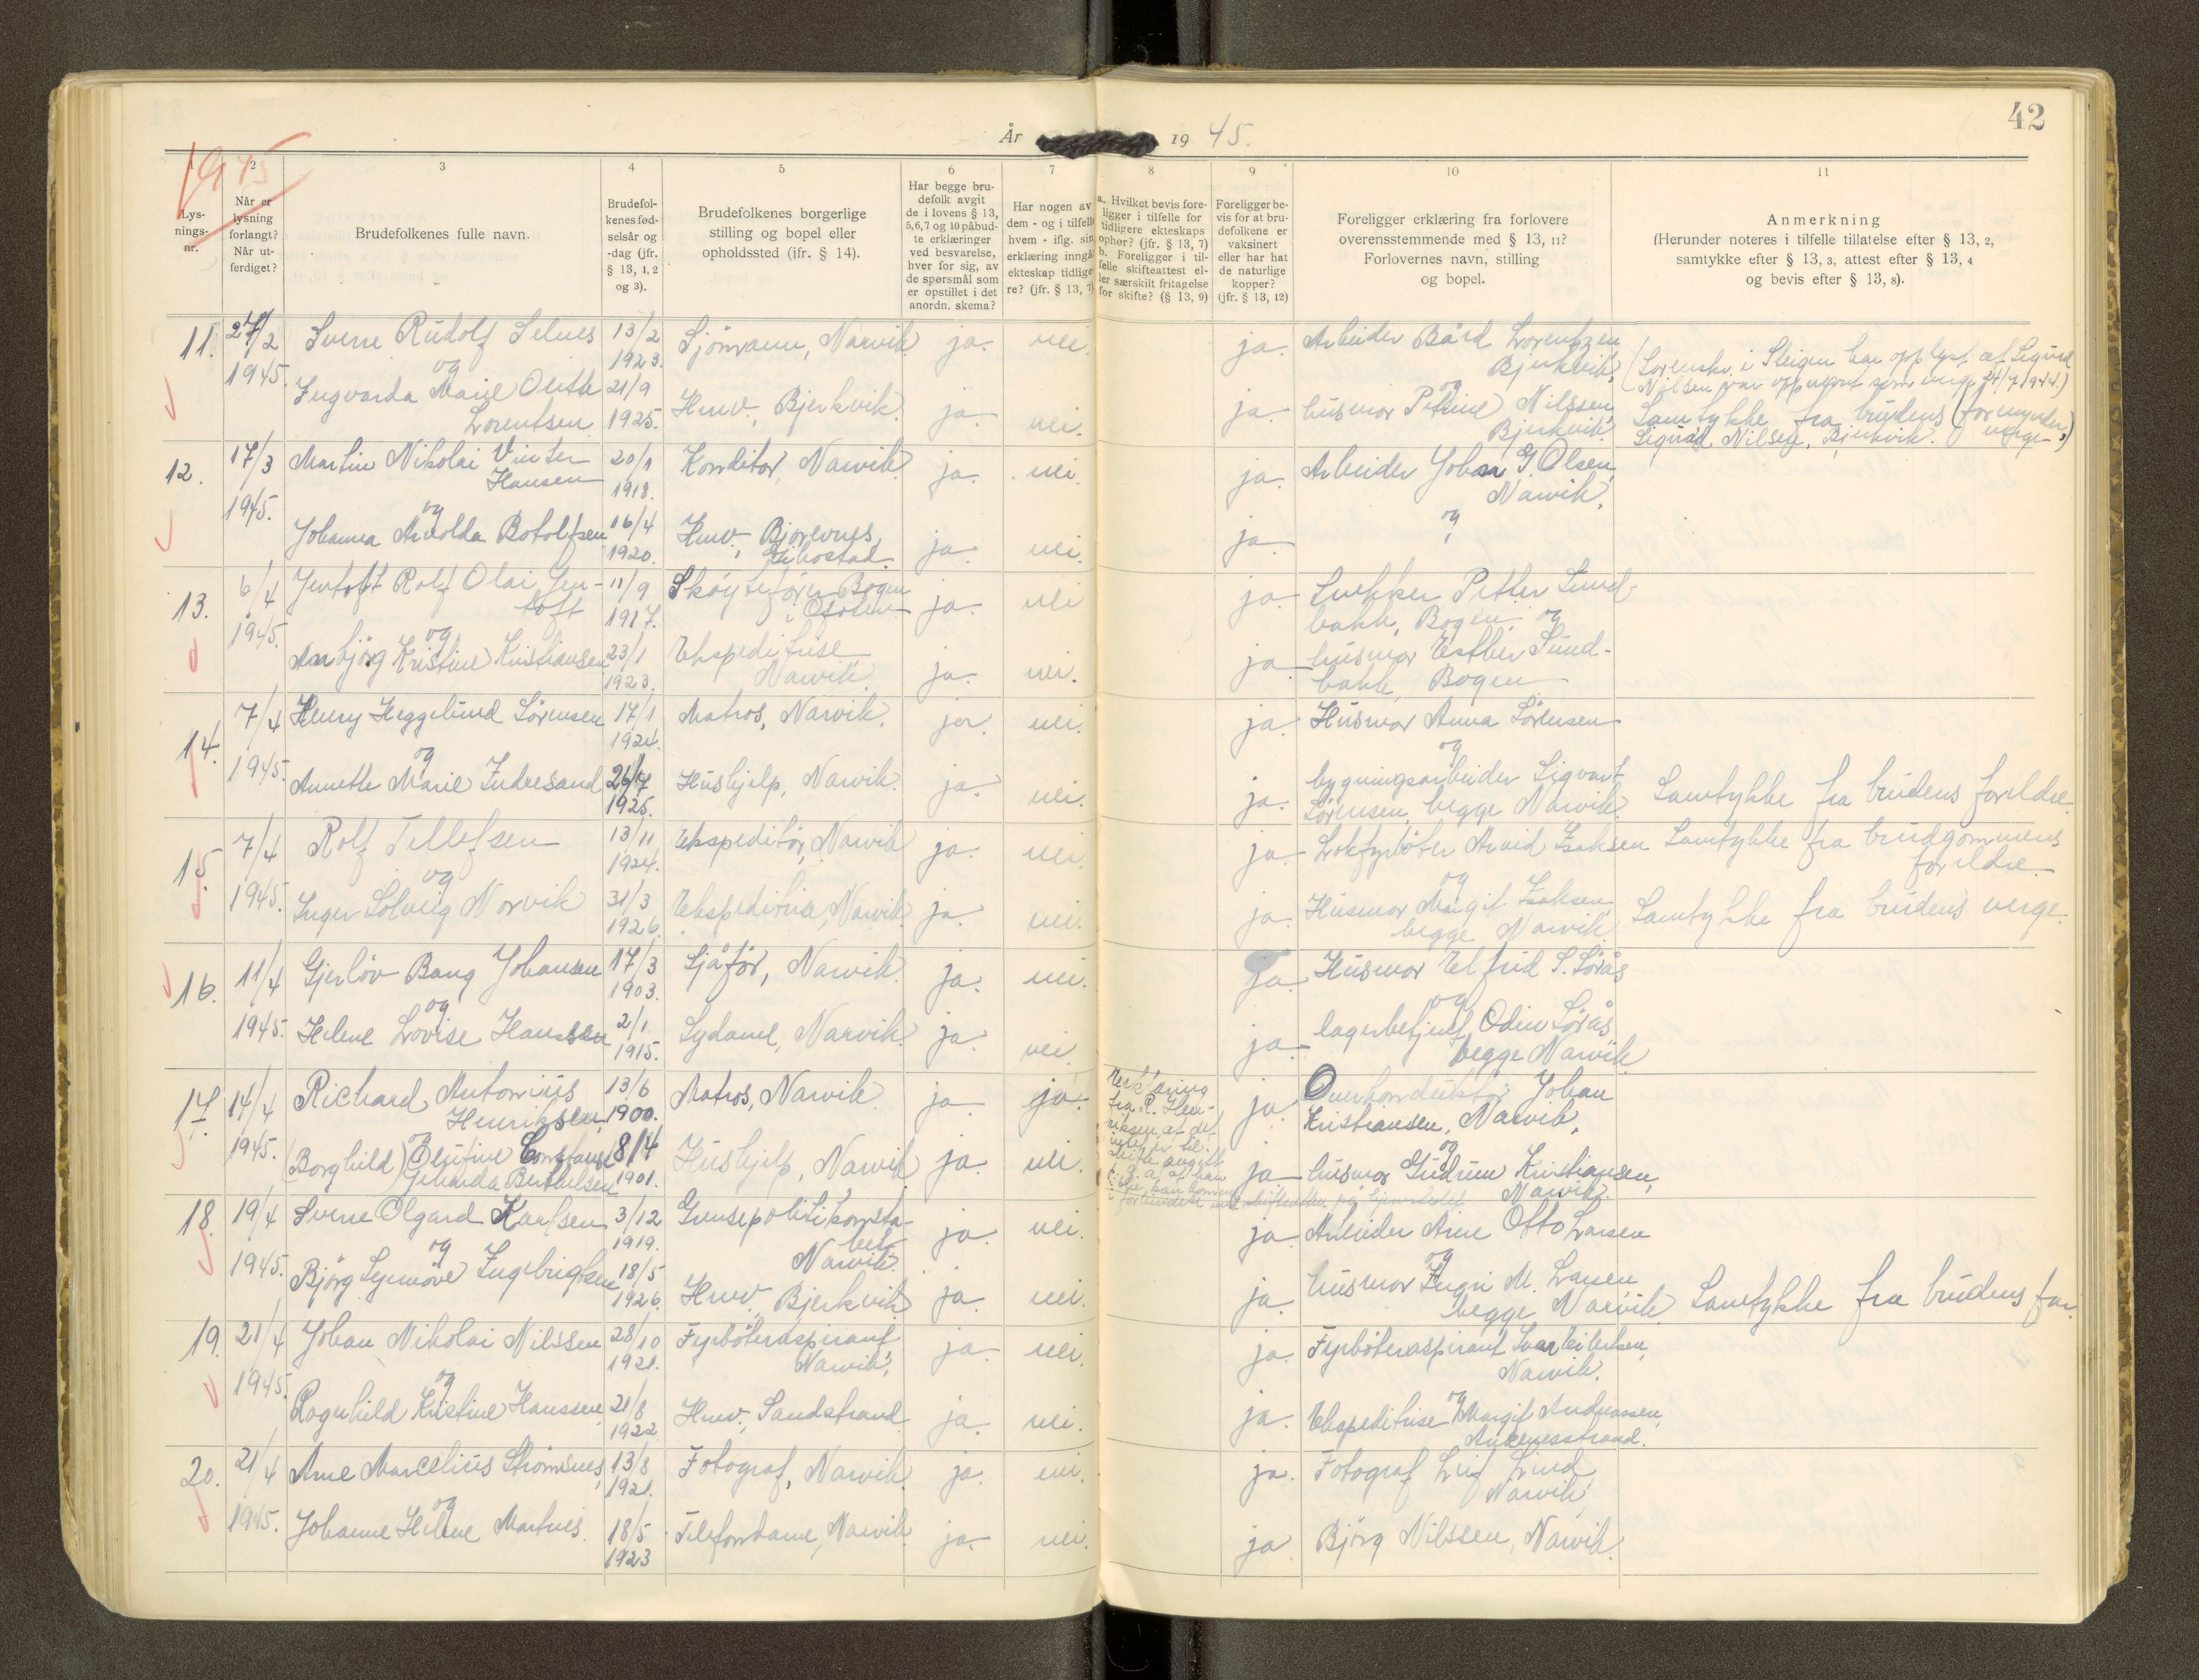 42
År 1945.
1945
1 2 3 4 5 6 7 8 9 10 11
Lys-
nings-
nr.
Når er
lysning
forlangt?
Når ut-
ferdiget?
Brudefolkenes fulle navn.
Brudefol-
kenes fød-
selsår og
-dag (jfr.
§ 13, 1, 2
og 3).
Brudefolkenes borgerlige
stilling og bopel eller
opholdssted (ifr. § 14).
Har begge bru-
defolk avgit
de i lovens § 13,
5,6,7 og 10 påbud-
te erklæringer
ved besvarelse,
hver for sig, av
de spørsmål som
er opstillet i det
anordn. skema?
Har nogen av
dem - og i tilfelle
hvem - iflg. sin
erklæring inngå
ekteskap tidlige
re? (jfr. § 13, 7)
a. Hvilket bevis fore-
ligger i tilfelle for
tidligere ekteskaps
ophør? (jfr. § 13, 7)
b. Foreligger i til-
felle skifteattest el-
ler særskilt fritagelse
for skifte? (§ 13, 9)
Foreligger be-
vis for at bru-
defolkene er
vaksinert
eller har hat
de naturlige
kopper?
(jfr. § 13, 12)
Foreligger erklæring fra forlovere
overensstemmende med § 13, 11?
Forlovernes navn, stilling
og bopel.
Anmerkning
(Herunder noteres i tilfelle tillatelse efter § 13, 2,
samtykke efter § 13, 3, attest efter § 13, 4
og bevis efter § 13, 8).
11. 27/2 Sverre Rudolf Selnes 13/2 Sjömann, Narvik. ja. nei. ja. Arbeider Bård Lorentzen
1945. og 1923. Bjerkvik, (Lorensk. i Steigen har opplyst at Sigurd
Nilsen var oppnevnt som verge 24/7 1944.)
Ingvarda Marie Outh 21/9 Hmv., Bjerkvik. ja. nei. ja. og husmor Petrine Nilssen Samtykke fra brudens (formynder,)
Lorentsen 1925. Bjerkvik. Sigurd Nilsen, Bjerkvik. verge
12. 17/3 Martin Nikolai Vinter 20/1 Konditor, Narvik. ja. nei. ja. Arbeider Johan G. Olsen,
1945. Hansen 1918. Narvik,
og og
Johanna Arvolda Botolfsen 16/4 Hmv., ja. nei. ja.
1920. Gibostad.
13. 6/4 Jentoft Rolf Olai Jen- 11/9 Skøytefører Bogen ja. nei ja. Petter Sund-
1945. toft 1917. i Ofoten bakk, Bogen og
og
Anbjörg Kristine Kristiansen 23/1 Ekspeditrise ja. nei. ja. husmor Esther Sund-
1923. Narvik bakk, Bogen
14. 7/4 Henry Heggelund Sörensen 17/1 Matros, Narvik. ja. nei. ja. Husmor Anna Sörensen
1945. og 1924. og
Annette Marie Indresand 26/7 Hushjelp, Narvik. ja. nei. ja. bygningsarbeider Sigvart
1925. Sörensen, begge Narvik. Samtykke fra brudens foreldre
15. 7/4 Rolf Tellefsen 13/11 Ekspeditör, Narvik ja. nei. ja. Lokfyrböter Arvid Isaksen Samtykke fra brudgommens
1945. og 1924. og foreldre
Inger Solveig Norvik 31/3 Ekspeditrise, Narvik ja. nei. ja. Husmor Margit Isaksen Samtykke fra brudens verge.
1926. begge Narvik
16. 11/4 Gjerlöv Bang Johansen 17/3 Sjåför, Narvik. ja. nei. ja. Husmor Elfrid S. Sörås
1945. og 1903. og
Helene Lovise Hanssen 2/1. Sydame, Narvik. ja. nei. ja. lagerbetjent Odin Sörås
1915. begge Narvik
17. 14/4 Richard Antonius 13/6 Matros, Narvik. ja. ja. ja. Overkonduktör Johan
1945. Henriksen, 1900. Kristiansen, Narvik,
og og
(Borghild) Olufine Constanse 8/4 Hushjelp, Narvik ja. nei. ja. husmor Gudrun Kristiansen,
Gelharda Berthelsen 1901. Narvik.
Erklæring
fra R. Hen-
riksen at det
18. 19/4 Sverre Olgard Karlsen 3/12 Grensepolitikonsta- ja. nei. ja. Arbeider Arne Otto Larsen
1945. og 1919. bel, Narvik. og
Björg Synnöve Ingebrigtsen 18/5 Hmv. Bjerkvik ja. nei. ja. husmor Ingri M. Larsen
1926. begge Narvik. Samtykke fra brudens far
19. 21/4 Johan Nikolai Nilssen 28/10 Fyrböteraspirant ja. nei. ja. Fyrböteraspirant Ivar Eilertsen,
1945. og 1921. Narvik, Narvik.
og
Ragnhild Kristine Hanssen 21/8 Hmv., Sandstrand ja. nei. ja. Ekspeditrise Margit Andreassen,
1922 Ankenesstrand.
20. 21/4 Arne Marcelius Strömsnes, 13/8 Fotograf, Narvik. ja. nei. ja. Fotograf Leif Lind
1945. og 1921. Narvik
Johanne Helene Martnes. 18/5 Telefondame, Narvik ja. nei. ja. Björg Nilssen, Narvik.
1923